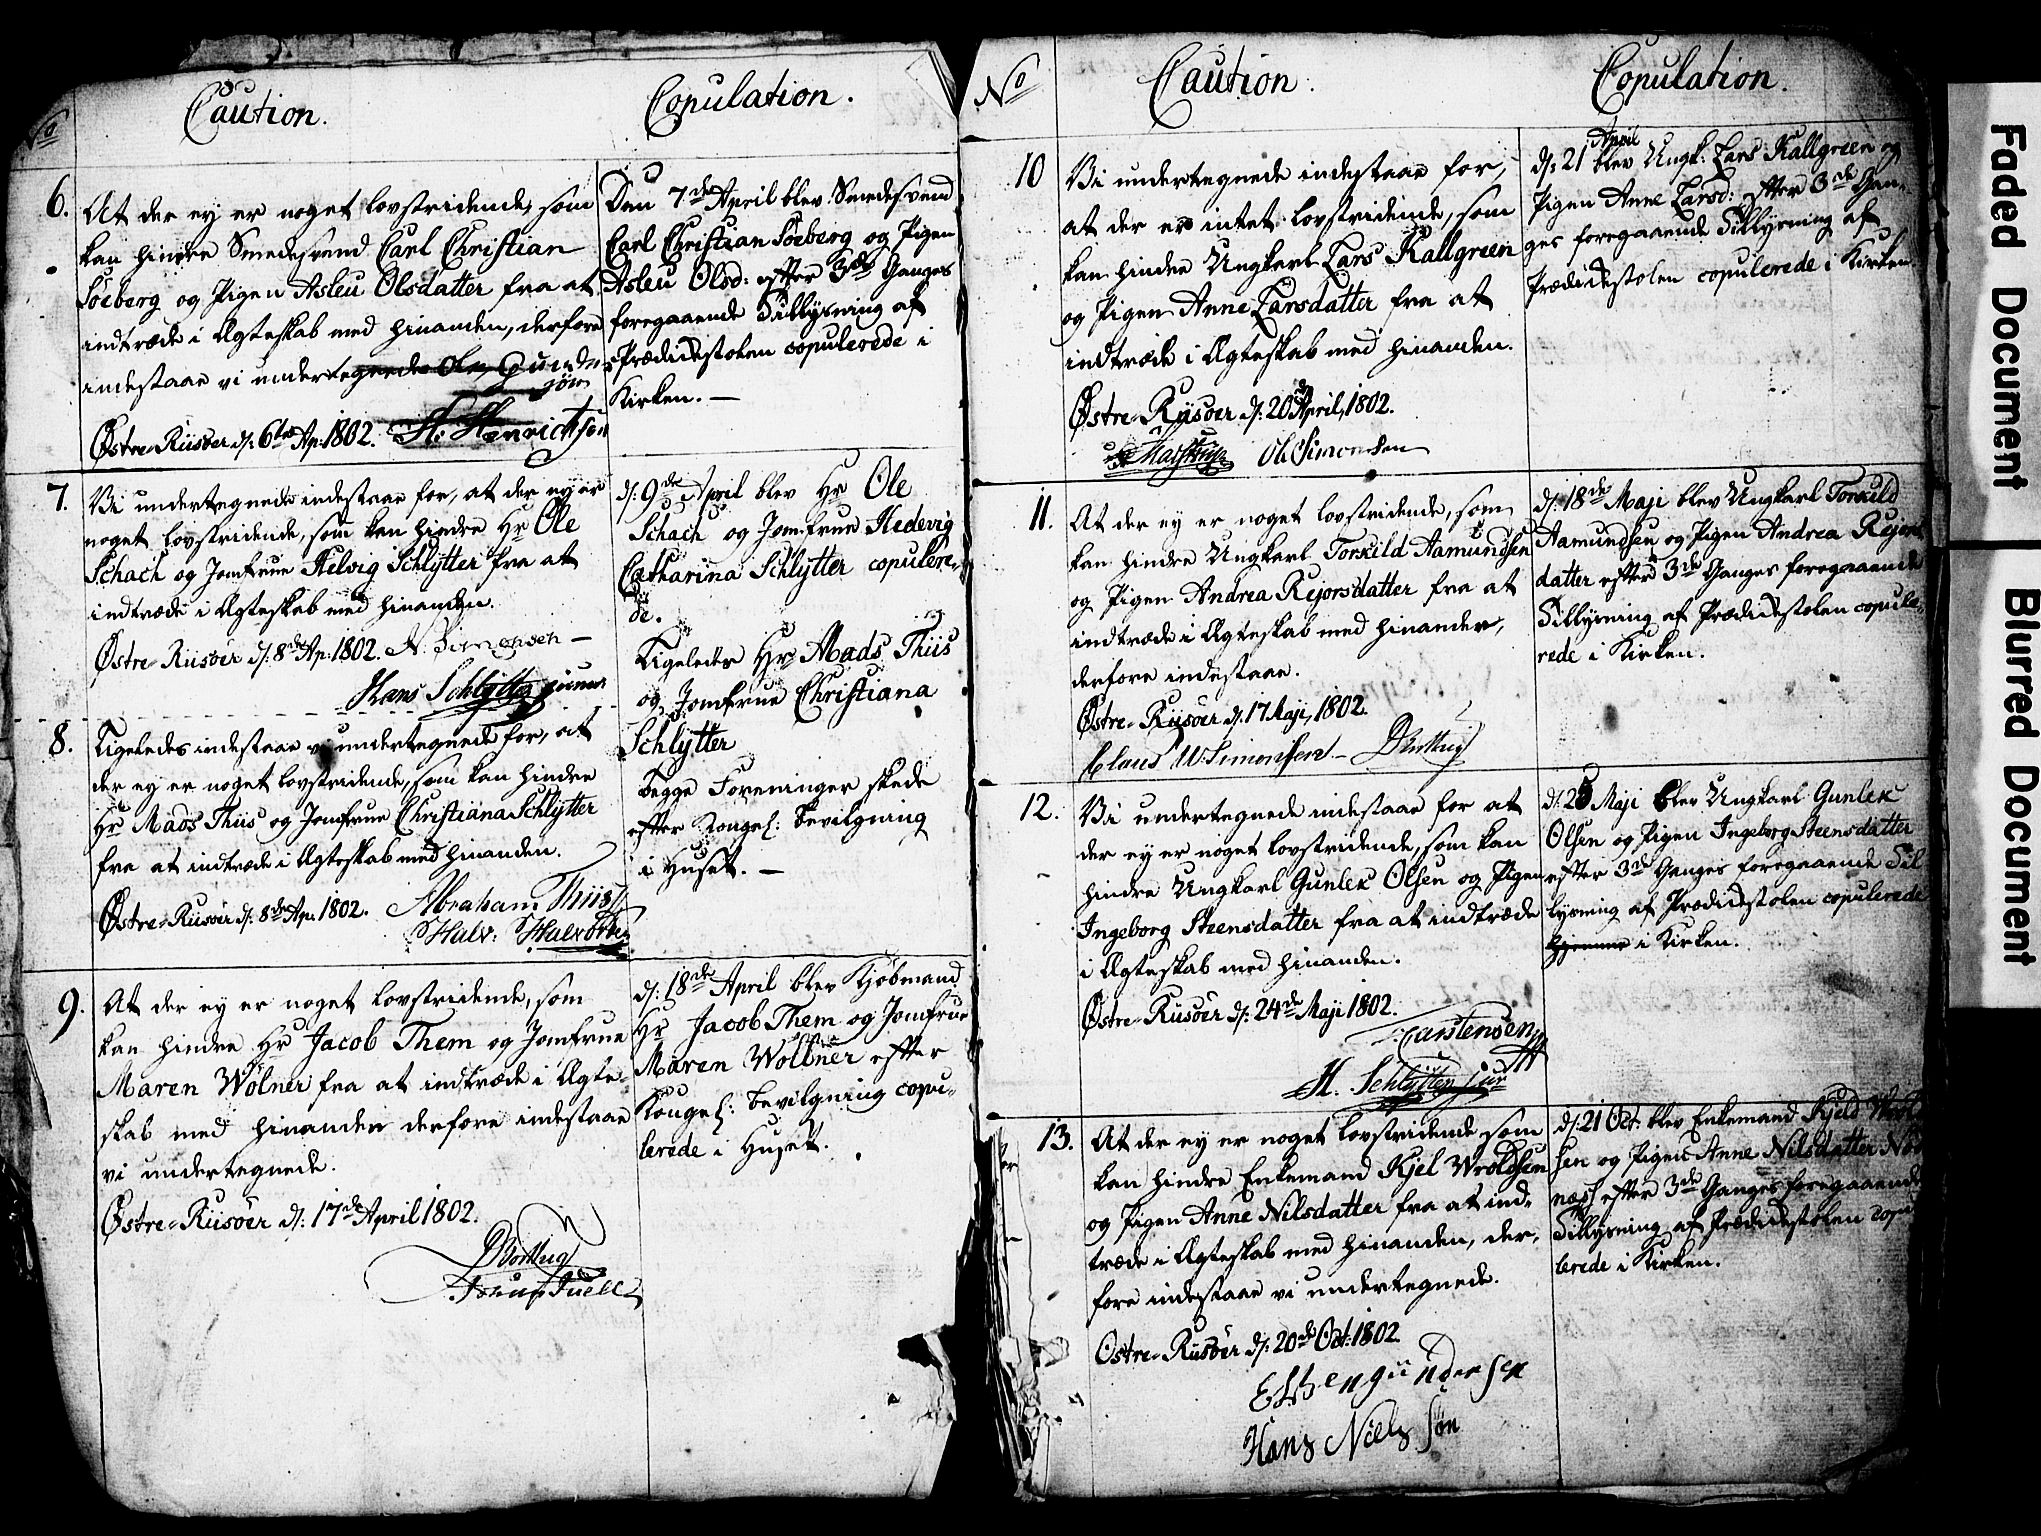 No Caution. Copulation.
6. At der ey er noget lovstridende, som
kan hindre Smedesvend Carl Christian
Söeberg og Pigen Asleu Olsdatter fra at
indtræde i Ægteskab med hinanden, derfore
indestaar vi undertegnede
Østre-Riisöer d: 6te Ap: 1802. H. Henrichsen
Den 7de April blev Smedesvend
Carl Christian Söeberg og Pigen
Asleu Olsd: efter 3de Ganges
foregaaende Tillysning af
Prædikestolen copulerede i
Kirken. —
7. Vi undertegnede indestaar for, at der ey er
noget lovstridende, som kan hindre Hr Ole
Schach og Jomfrue Helvig Schlytter fra at
indtræde i Ægteskab med hinanden.
Östre-Riisöer d: 8de Ap: 1802. N. Simonsen —
Hans Schlytter junior
d: 9de April blev Hr Ole
Schach og Jomfrue Hedevig
Catharina Schlytter copulere-
de.
8. Ligeledes indestaar vi undertegnede for, at
der ey er noget lovstridende, som kan hindre
Hr Mads Thiis og Jomfrue Christiana Schlytter
fra at indtræde i Ægteskab med hinanden.
Östre-Riisöer d: 8de Ap: 1802. Abraham Thiis
Halv: Halvors
Ligeledes Hr Mads Thiis
og Jomfrue Christiana
Schlytter
Begge Foreninger skede
efter Kongel: Bevilgning
i Huset. —
9. At der ey er noget lovstridende, som
kan hindre Hr Jacob Them og Jomfrue
Maren Wölner fra at indtræde i Ægte-
skab med hinanden derfore indestaar
vi undertegnede.
Östre-Riisöer d: 17de April 1802.
Juell
d: 18de April blev Kjöbmand
Hr Jacob Them og Jomfrue
Maren Wölbner efter
Kongel: Bevilgning copu-
lerede i Huset.
No Caution. Copulation.
10 Vi undertegnede indestaar for,
at der er intet lovstridende, som
kan hindre Ungkarl Lars Kallgreen
og Pigen Anne Larsdatter fra at
indtræde i Ægteskab med hinanden.
Østre-Riisöer d: 20de April, 1802.
Ole Simonsen
d: 21 April blev Ungk: Lars Kallgreen og
Pigen Anne Larsd: efter 3de Gan-
ges foregaaende Tillysning af
Prædikestolen copulerede i Kirken.
11. At der ey er noget lovstridende, som
kan hindre Ungkarl Torkild Aamundsen
og Pigen Andrea Rejersdatter fra at
indtræde i Ægteskab med hinanden,
derfore indestaar.
Østre-Riisöer d: 17 Maji, 1802.
Claus W. Simonsen —
d: 18de Maji blev Ungkarl Torkild
Aamundsen og Pigen Andrea Rejers
datter efter 3de Ganges foregaaende
Tillysning af Prædikestolen copule-
rede i Kirken.
12. Vi undertegnede indestaar for at
der ey er noget lovstridende, som kan
hindre Ungkarl Gunlek Olsen og Pigen
Ingeborg Steensdatter fra at indtræde
i Ægteskab med hinanden.
Østre-Riisöer d: 24de Maji 1802.
Carstensen
H. Schlytter jun
d: 25 Maji blev Ungkarl Gunlek
Olsen og Pigen Ingeborg Steensdatter
efter 3de Ganges foregaaende Til
lysning af Prædikestolen copulerede
hjemme i Kirken.
13. At der ey er noget lovstridende som
kan hindre Enkemand Kjel Wroldsen
og Pigen Anne Nilsdatter fra at ind-
træde i Ægteskab med hinanden, der-
fore indestaar vi undertegnede.
Ostre-Riisöer d: 20de Oct: 1802.
Esben gündersen
Hans Niels søn
d: 21 Oct: blev Enkemand Kjeld
sen og Pigen Anne Nilsdatter
næss efter 3de Ganges foregaaende
Tillysning af Prædikestolen copu
lerede i Kirken.
Faded Document
Blurred Document